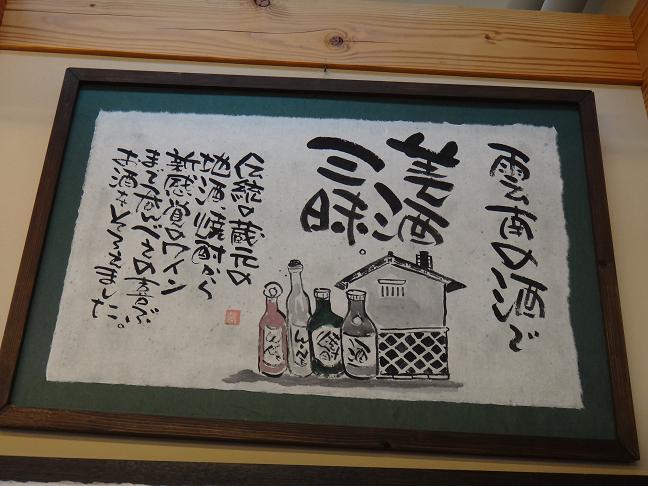 雲南の酒で
美酒
三昧。
伝統の蔵元の
地酒、焼酎から
新感覚のワイン
まで呑んべえの喜ぶ
お酒をそろえました。
酒